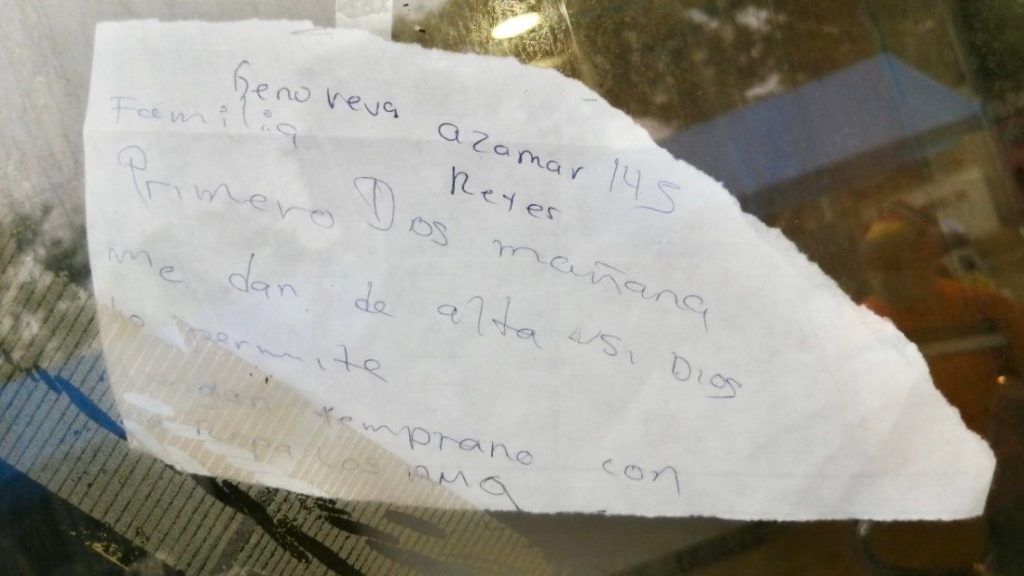 Genoveva azamar 145
Familia Reyes
Primero Dios mañana
me dan de alta si Dios
lo permite
vengan temprano con
ropa los ama